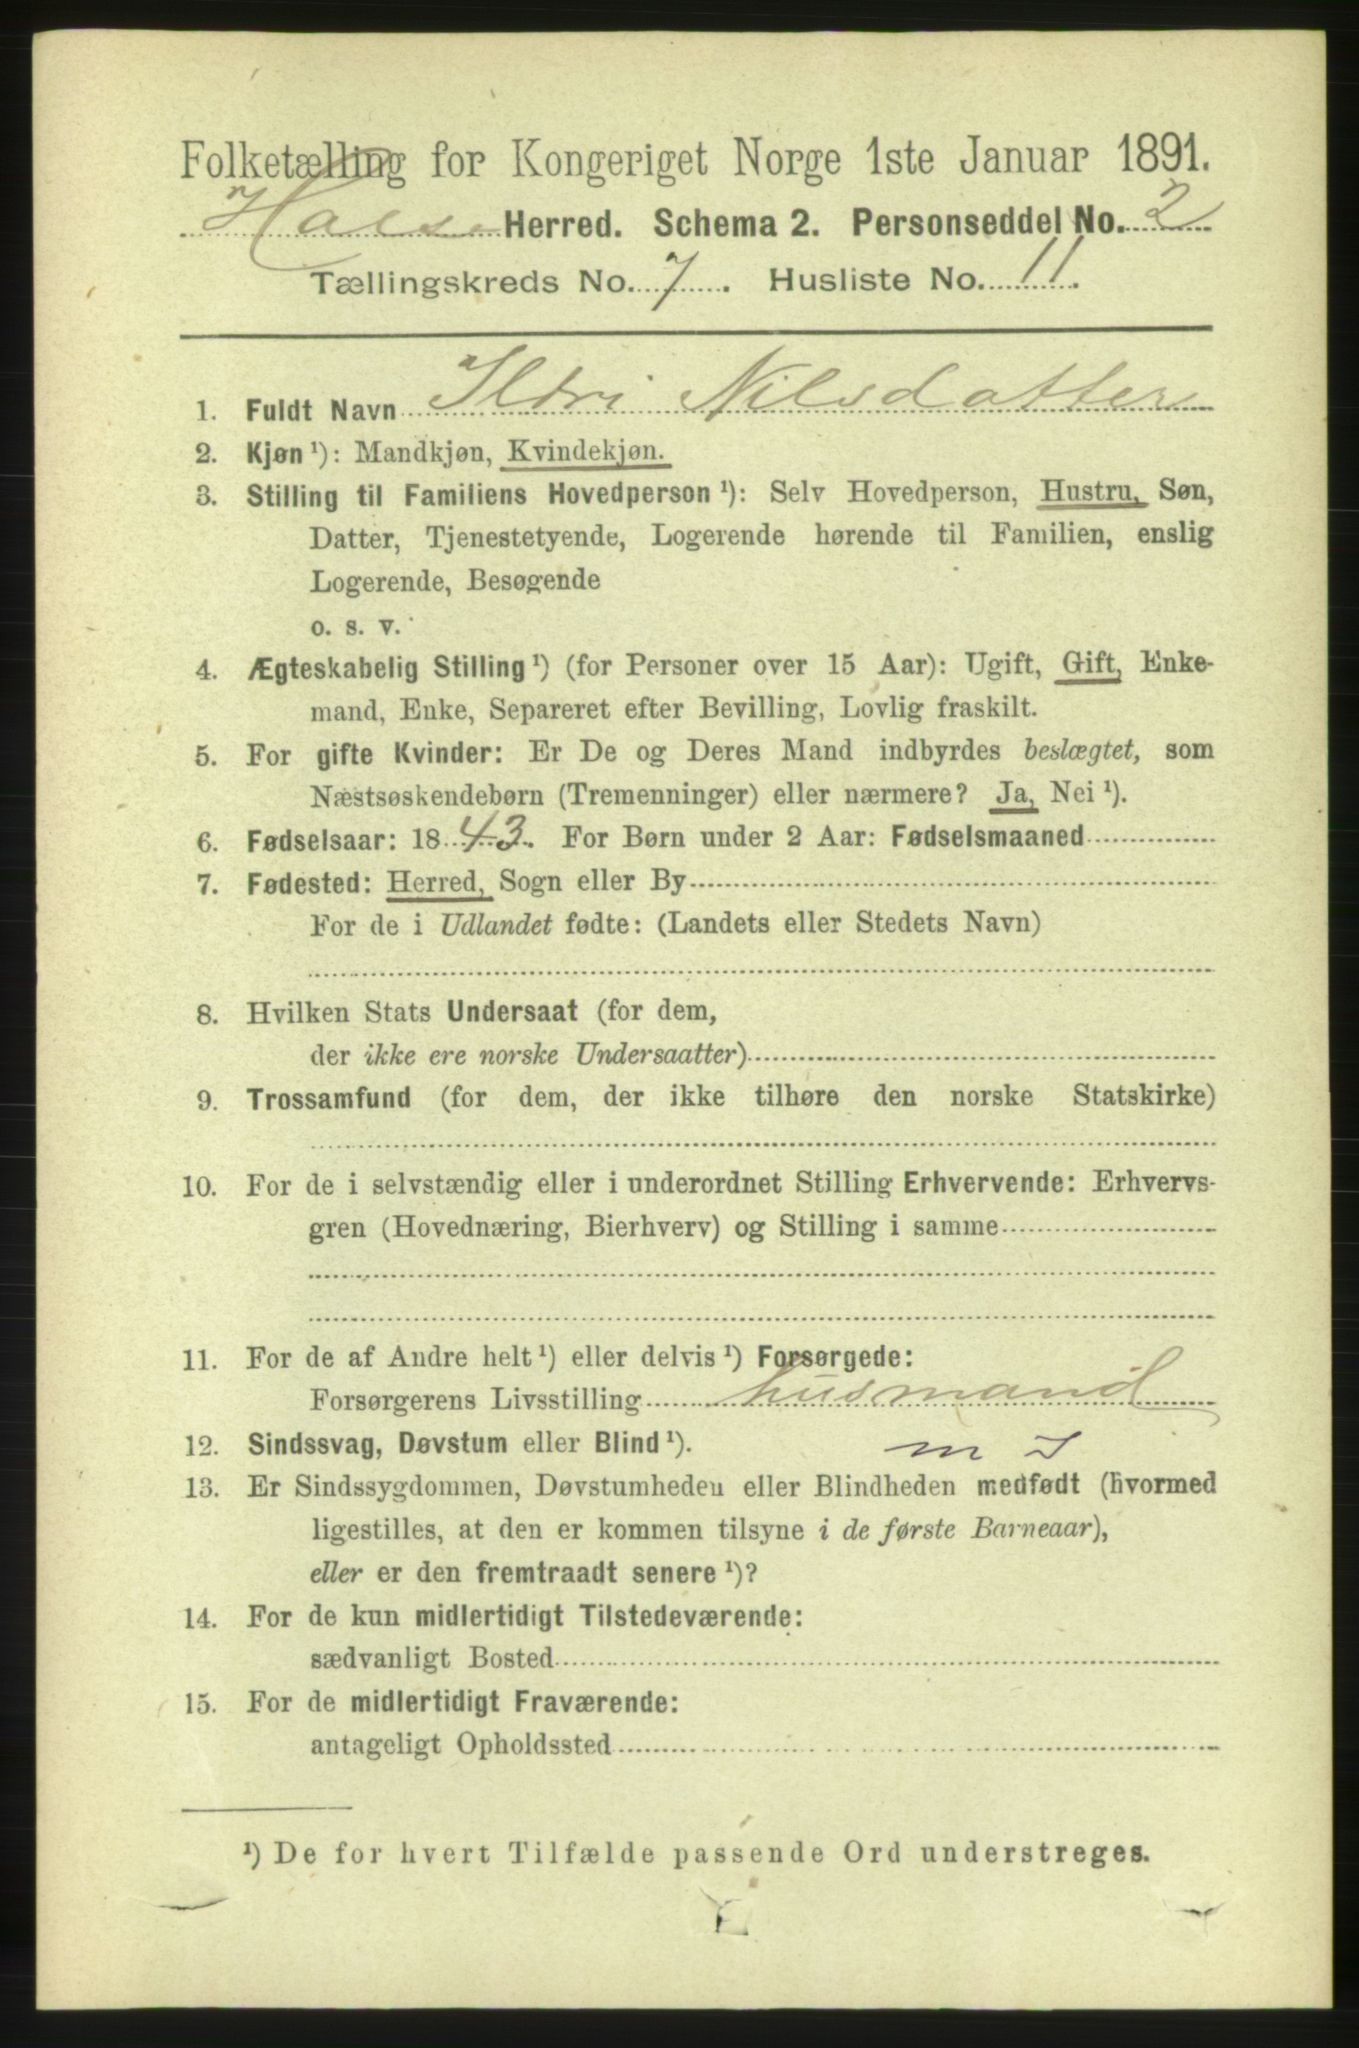 Folketælling for Kongeriget Norge 1ste Januar 1891.
Halse Herred. Schema 2. Personseddel No. 2
Tællingskreds No. 7. Husliste No. 11.
1. Fuldt Navn Ildri Nilsdatter
2. Kjøn ¹): Mandkjøn, Kvindekjøn.
3. Stilling til Familiens Hovedperson ¹): Selv Hovedperson, Hustru, Søn,
Datter, Tjenestetyende, Logerende hørende til Familien, enslig
Logerende, Besøgende
o. s. v.
4. Ægteskabelig Stilling ¹) (for Personer over 15 Aar): Ugift, Gift, Enke-
mand, Enke, Separeret efter Bevilling, Lovlig fraskilt.
5. For gifte Kvinder: Er De og Deres Mand indbyrdes beslægtet, som
Næstsøskendebørn (Tremenninger) eller nærmere? Ja, Nei ¹).
6. Fødselsaar: 1843. For Børn under 2 Aar: Fødselsmaaned
7. Fødested: Herred, Sogn eller By
For de i Udlandet fødte: (Landets eller Stedets Navn)
8. Hvilken Stats Undersaat (for dem,
der ikke ere norske Undersaatter)
9. Trossamfund (for dem, der ikke tilhøre den norske Statskirke)
10. For de i selvstændig eller i underordnet Stilling Erhvervende: Erhvervs-
gren (Hovednæring, Bierhverv) og Stilling i samme
11. For de af Andre helt ¹) eller delvis ¹) Forsørgede:
Forsørgerens Livsstilling husmand
12. Sindssvag, Døvstum eller Blind ¹). m J
13. Er Sindssygdommen, Døvstumheden eller Blindheden medfødt (hvormed
ligestilles, at den er kommen tilsyne i de første Barneaar),
eller er den fremtraadt senere ¹)?
14. For de kun midlertidigt Tilstedeværende:
sædvanligt Bosted
15. For de midlertidigt Fraværende:
antageligt Opholdssted
¹) De for hvert Tilfælde passende Ord understreges.